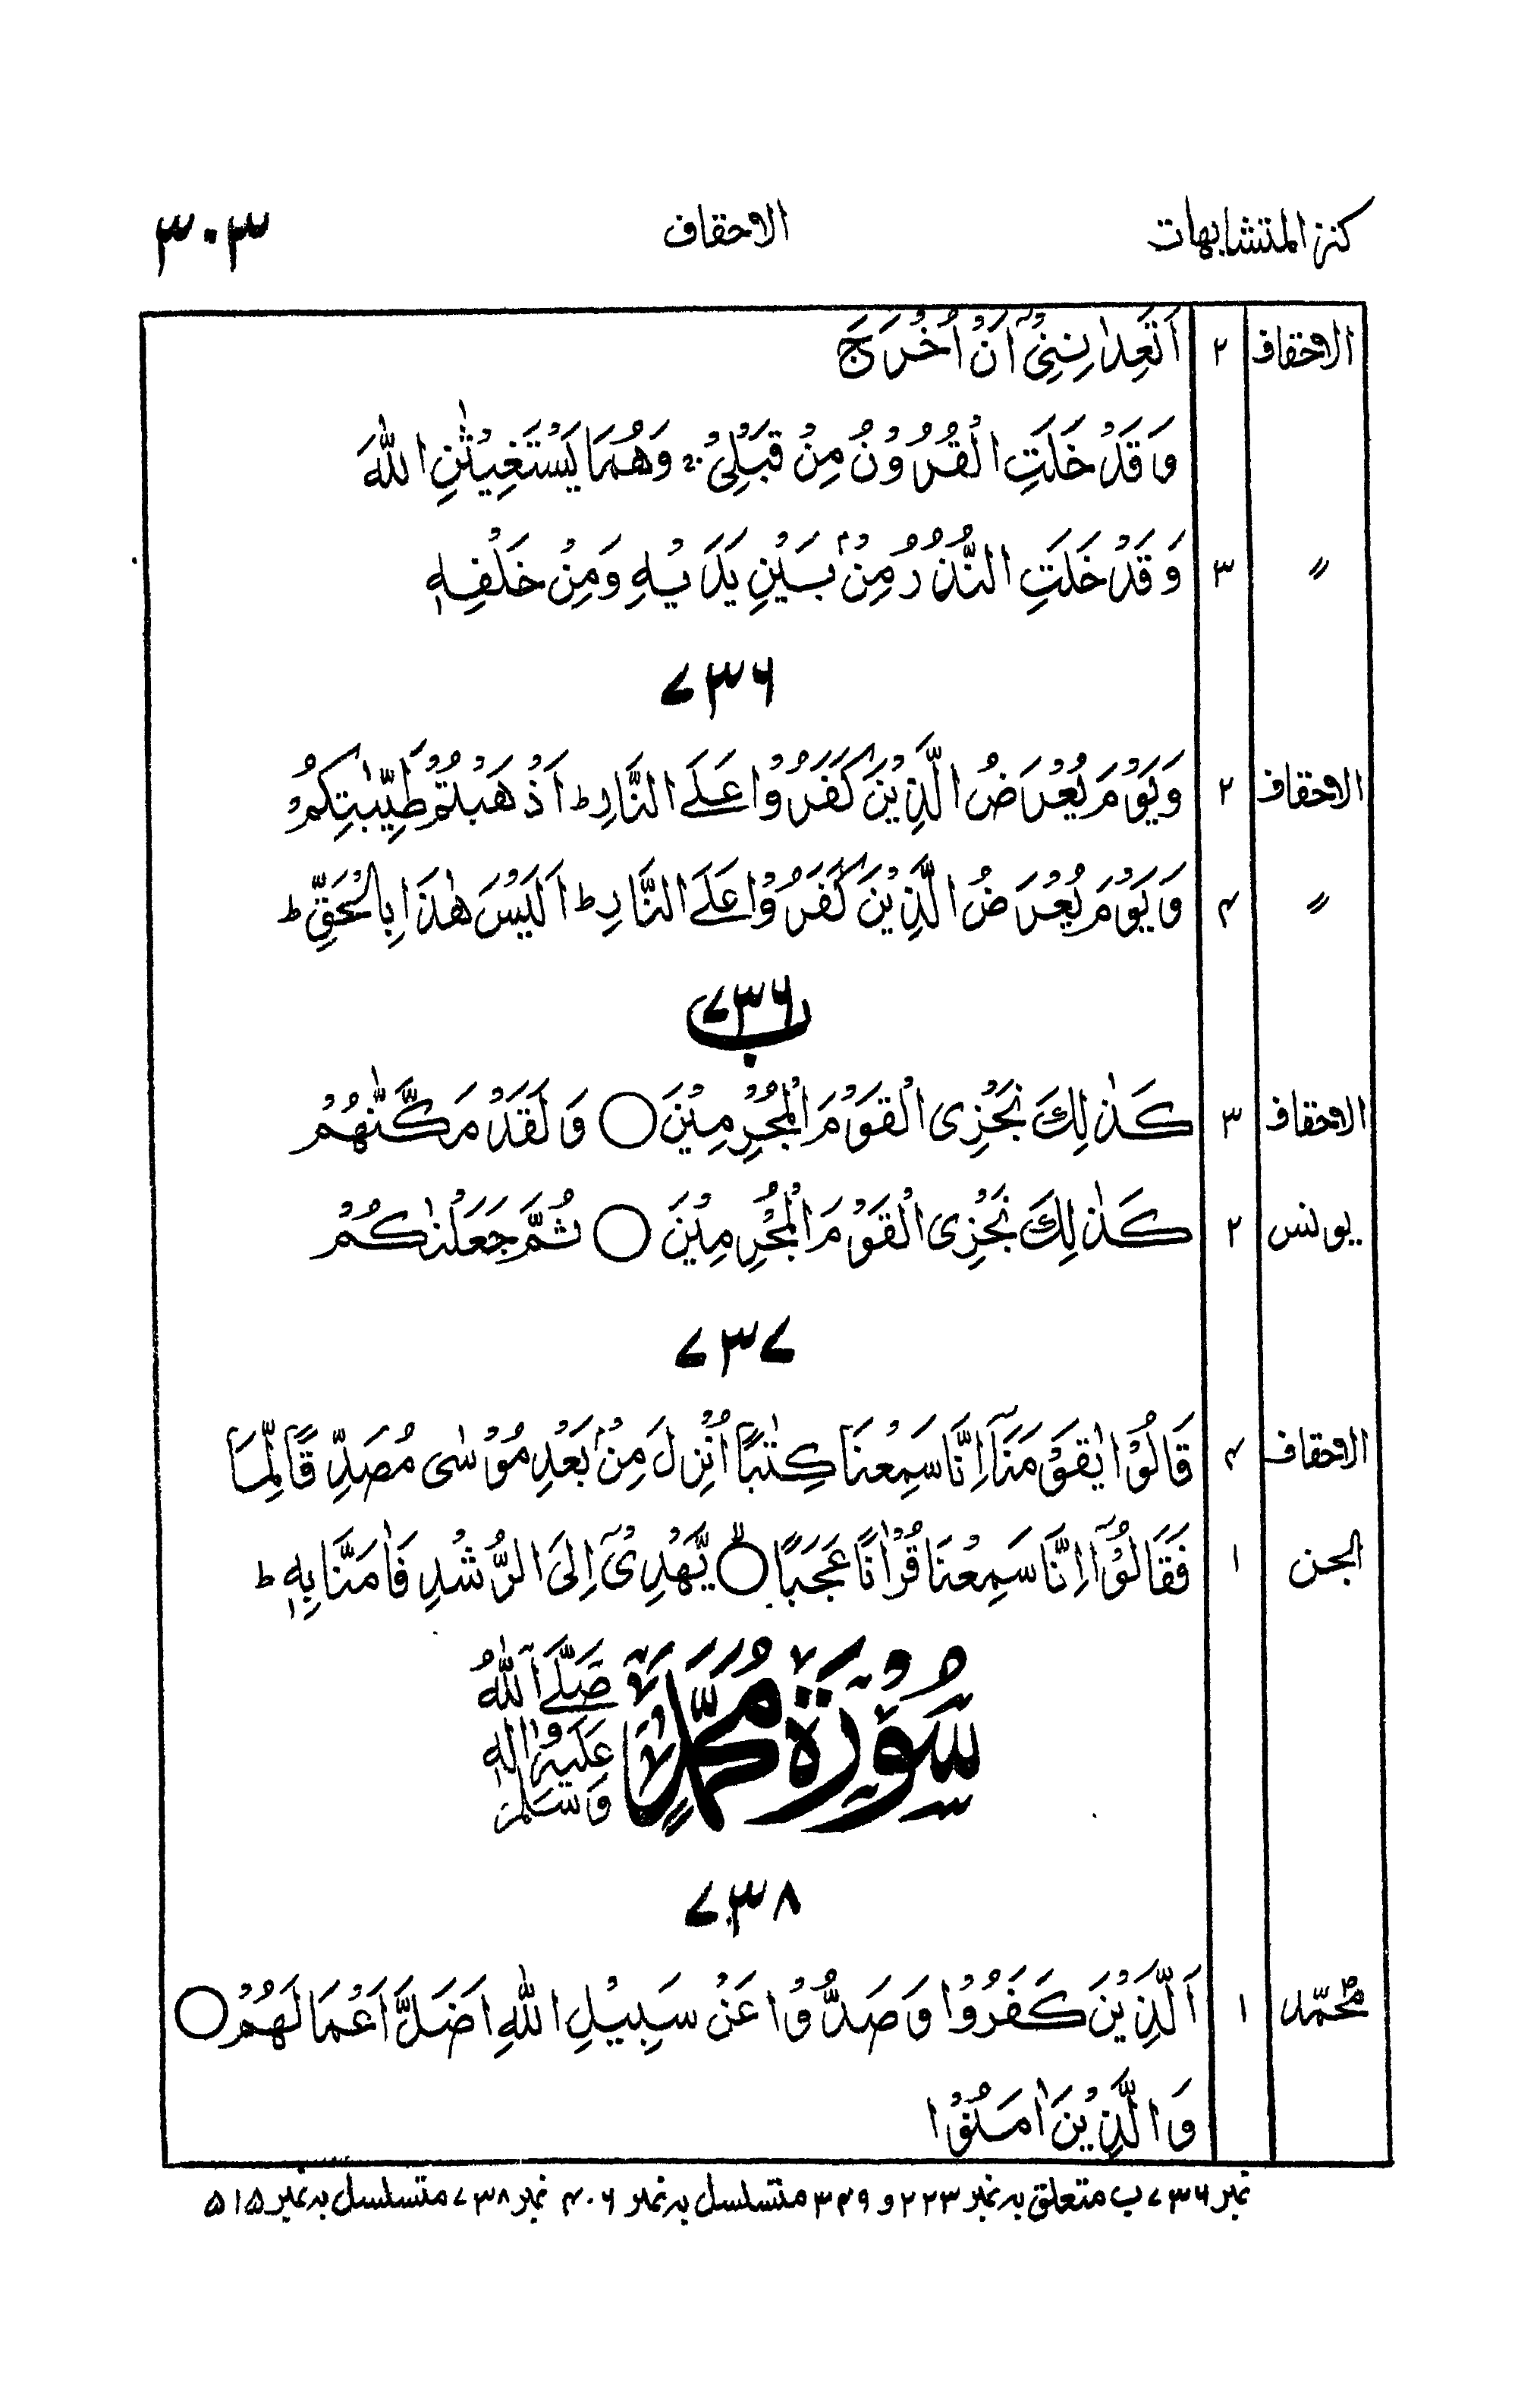 کنز المتشابہات الاحقاف ۳۰۳
الاحقاف ۲ اَتَعِدٰنِنِیْۤ اَنْ اُخْرَجَ
وَقَدْ خَلَتِ الْقُرُوْنُ مِنْ قَبْلِیْ ۚ وَهُمَا یَسْتَغِیْثٰنِ اللّٰهَ
〃 ۳ وَقَدْ خَلَتِ النُّذُرُ مِنْۢ بَیْنِ یَدَیْهِ وَمِنْ خَلْفِهٖ
۷۳۶
الاحقاف ۲ وَیَوْمَ یُعْرَضُ الَّذِیْنَ كَفَرُوْا عَلَی النَّارِ ؕ اَذْهَبْتُمْ طَیِّبٰتِكُمْ
〃 ۴ وَیَوْمَ یُعْرَضُ الَّذِیْنَ كَفَرُوْا عَلَی النَّارِ ؕ اَلَیْسَ هٰذَا بِالْحَقِّ ؕ
۷۳۶ ب
الاحقاف ۳ كَذٰلِكَ نَجْزِی الْقَوْمَ الْمُجْرِمِیْنَ ○ وَلَقَدْ مَكَّنّٰهُمْ
یونس ۲ كَذٰلِكَ نَجْزِی الْقَوْمَ الْمُجْرِمِیْنَ ○ ثُمَّ جَعَلْنٰكُمْ
۷۳۷
الاحقاف ۴ قَالُوْا یٰقَوْمَنَاۤ اِنَّا سَمِعْنَا كِتٰبًا اُنْزِلَ مِنْۢ بَعْدِ مُوْسٰی مُصَدِّقًا لِّمَا
الجن ۱ فَقَالُوْۤا اِنَّا سَمِعْنَا قُرْاٰنًا عَجَبًا ○ۙ یَّهْدِیْۤ اِلَی الرُّشْدِ فَاٰمَنَّا بِهٖ ؕ
سُوْرَةُ مُحَمَّدٍ صَلَّی اللّٰهُ عَلَیْهِ وَاٰلِهٖ وَسَلَّمَ
۷۳۸
محمّد ۱ اَلَّذِیْنَ كَفَرُوْا وَصَدُّوْا عَنْ سَبِیْلِ اللّٰهِ اَضَلَّ اَعْمَالَهُمْ ○
وَالَّذِیْنَ اٰمَنُوْا
نمبر ۷۳۶ ب متعلق بہ نمبر ۲۲۳ و ۳۴۹ متسلسل بہ نمبر ۴۰۶ نمبر ۷۳۸ متسلسل بہ نمبر ۵۱۵